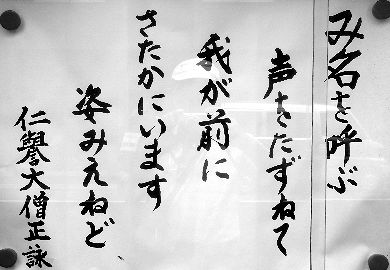 み名を呼ぶ
声をたずねて
我が前に
さたかにいます
姿みえねど
仁譽大僧正詠